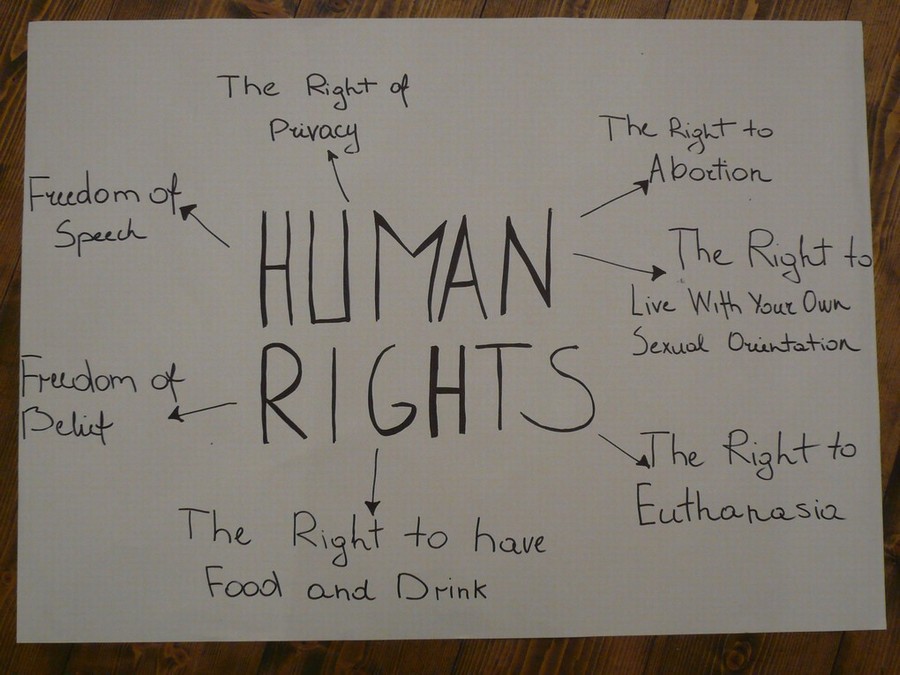 The Right of
Privacy
The Right to
Abortion
Freedom of
Speech
HUMAN
RIGHTS
The Right to
Live With Your Own
Sexual Orientation
Freedom of
Belief
The Right to
Euthanasia
The Right to have
Food and Drink